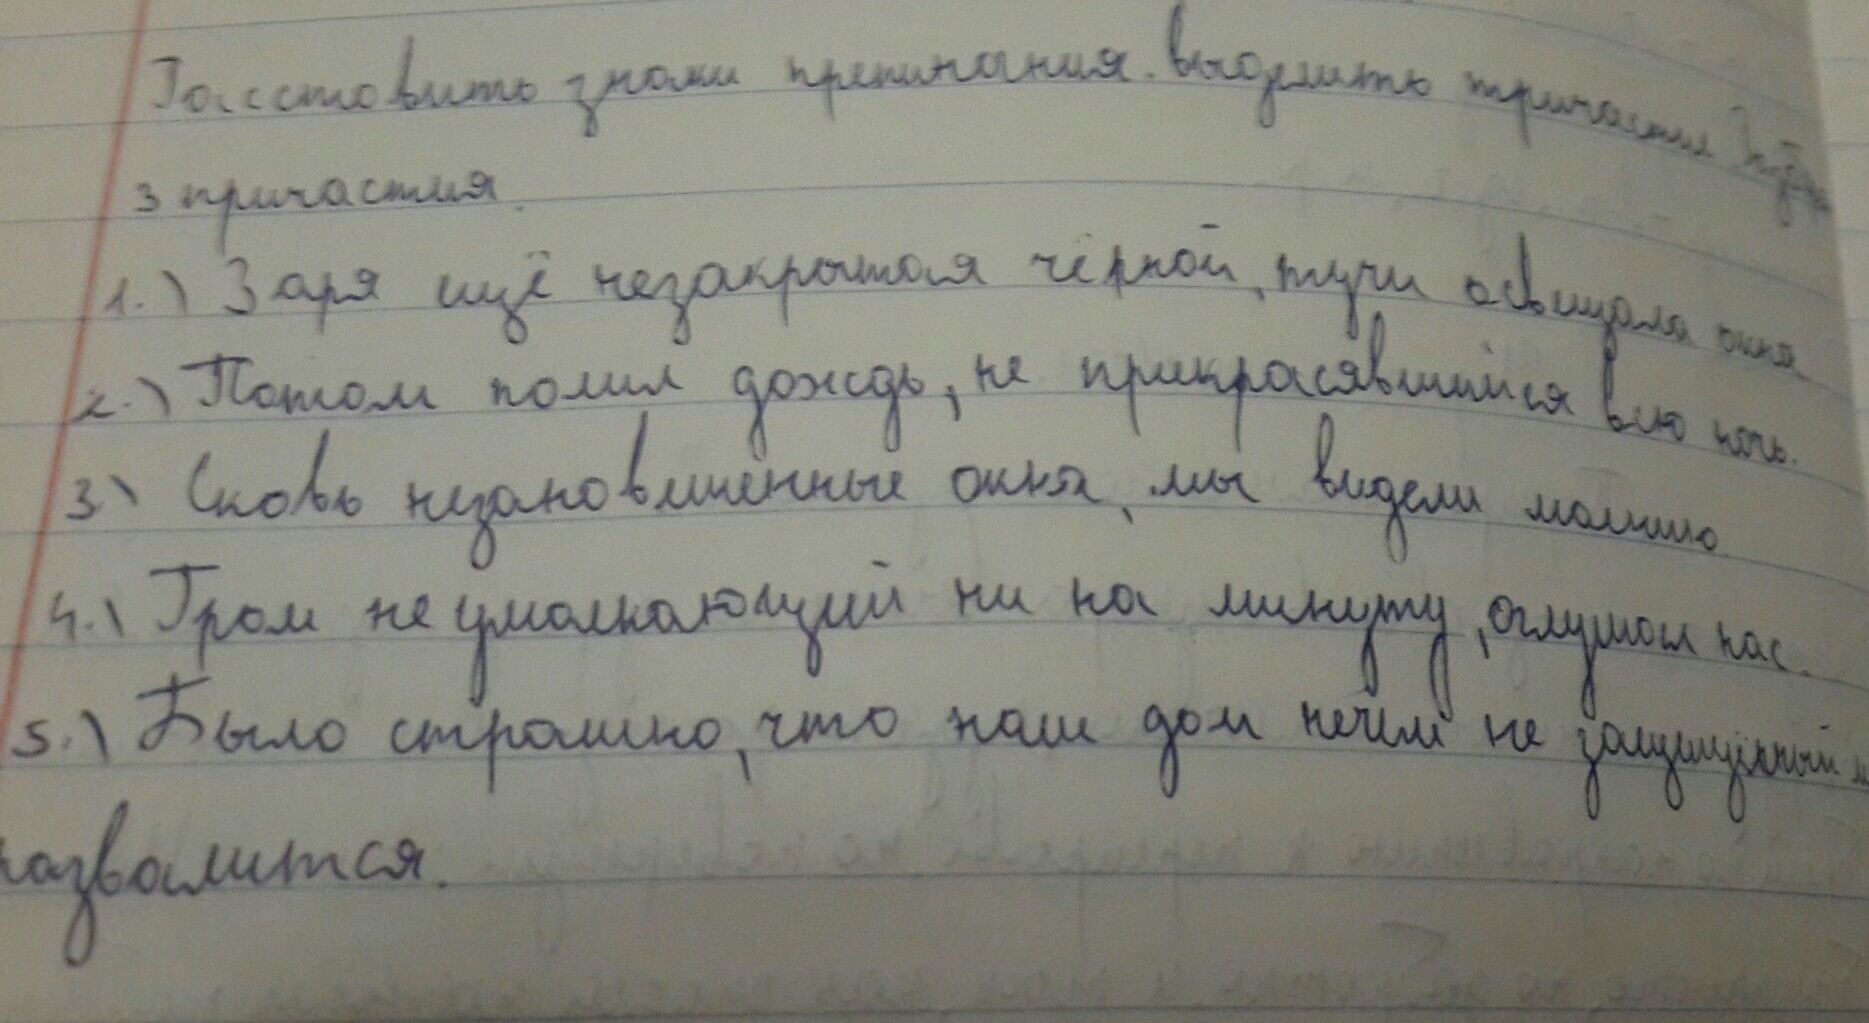 Расставить знаки препинания. выделить причастия
3 причастия.
1.) Заря ещё незакрытая чёрной, тучи освищала окна
2.) Потом полил дождь, не прикрасявшийся всю ночь.
3) Сковь незановешенные окна, мы видели молнию
4.) Гром не умолкающий ни на минуту, оглушал нас.
5.) Было страшно, что наш дом нечем не защищённый
развалится.